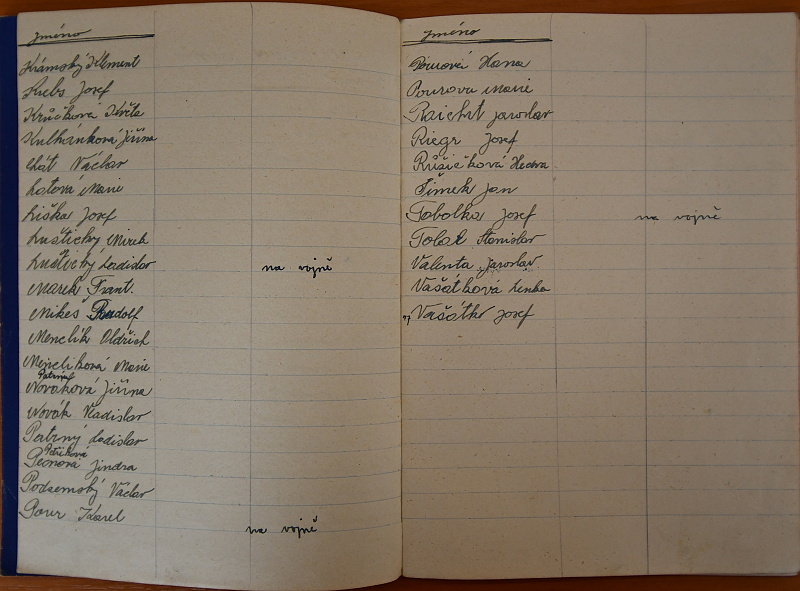 Jméno
Krámský Klement
Krebs Josef
Krůčková Květa
Kulhánková Jiřina
Lhát Václav
Lotová Marie
Liška Josef
Luštický Mirek
Luštický Ladislav na vojně
Marek Frant.
Mikeš Rudolf
Menclík Oldřich
Menclíková Marie
Nováková Jiřina
Novák Vladislav
Patrný Ladislav
Petříková
Jindra
Podzemský Václav
Pour Karel na vojně
Jméno
Pourová Hana
Pourova Marie
Raichrt Jaroslav
Riegr Josef
Růžičková Hedva
Šimek Jan
Tobolka Josef na vojně
Tolar Stanislav
Valenta Jaroslav
Vašátková Lenka
Vašátko Josef